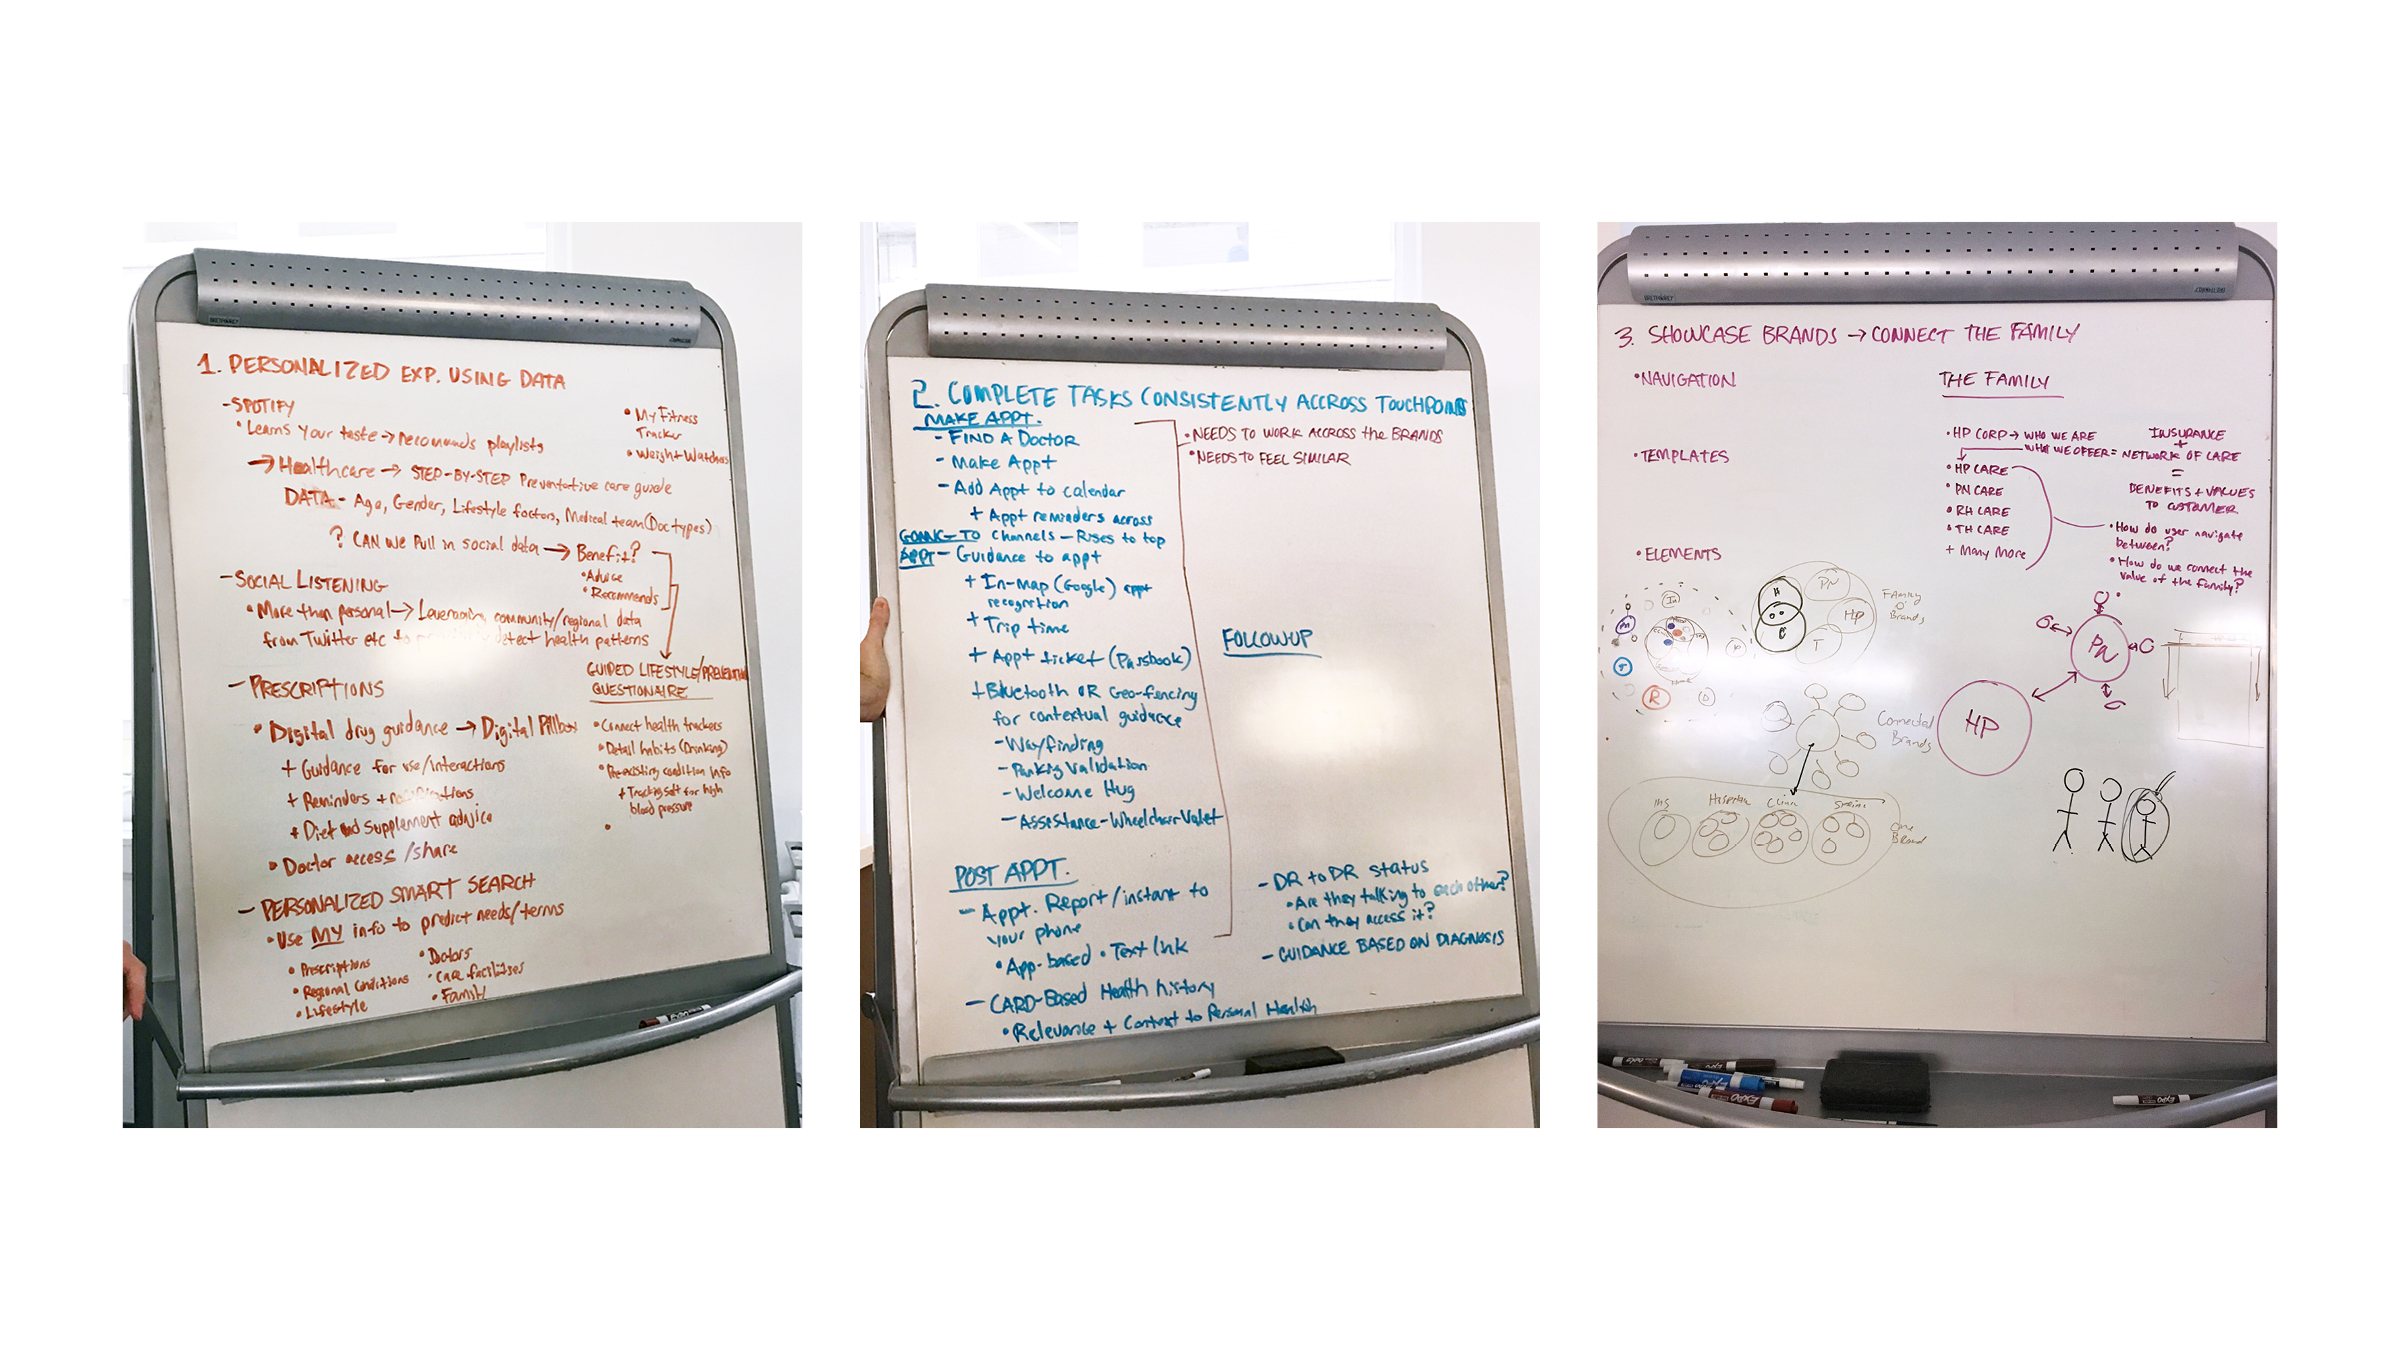 1. PERSONALIZED EXP. USING DATA
- SPOTIFY
• Learns your taste → recommends playlists
• My Fitness
Tracker
• Weight Watchers
→ Healthcare → STEP-BY-STEP Preventative care guide
DATA - Age, Gender, Lifestyle factors, Medical team (Doc types)
? CAN we Pull in social data → Benefit?
• Advice
• Recommends
- SOCIAL LISTENING
• More than personal → Leveraging community/regional data
from Twitter etc to detect health patterns
GUIDED LIFESTYLE/PREVENTION
QUESTIONAIRE
• Connect health trackers
• Detail habits (Drinking)
• Pre-existing condition info
+ Tracking salt for high
blood pressure
- PRESCRIPTIONS
• Digital drug guidance → Digital Pillbox
+ Guidance for use/interactions
+ Reminders + notifications
+ Diet and supplement advice
• Doctor access/share
- PERSONALIZED SMART SEARCH
• Use MY info to predict needs/terms
• Prescriptions
• Regional Conditions
• Lifestyle
• Doctors
• Care facilities
• Family
2. COMPLETE TASKS CONSISTENTLY ACCROSS TOUCHPOINTS
MAKE APPT.
- FIND A DOCTOR
- Make Appt
- Add Appt to calendar
+ Appt reminders across
channels - Rises to top
• NEEDS TO WORK ACCROSS the BRANDS
• NEEDS TO FEEL SIMILAR
GOING-TO
APPT
- Guidance to appt
+ In-map (Google) appt
recognition
+ Trip time
+ Appt ticket (Passbook)
+ Bluetooth OR Geo-fencing
for contextual guidance
- Wayfinding
- Parking Validation
- Welcome Hug
- Assistance - Wheelchair Valet
FOLLOWUP
POST APPT.
- Appt. Report/instant to
your phone
• App-based • Text link
- CARD-Based Health history
• Relevance + Context to Personal Health
- DR to DR status
• Are they talking to each other?
• Can they access it?
- GUIDANCE BASED ON DIAGNOSIS
3. SHOWCASE BRANDS → CONNECT THE FAMILY
• NAVIGATION
• TEMPLATES
• ELEMENTS
THE FAMILY
• HP CORP → WHO WE ARE
WHAT WE OFFER = NETWORK OF CARE
INSURANCE
+
=
BENEFITS + VALUES
TO CUSTOMER
• HP CARE
• PN CARE
• RH CARE
• TH CARE
+ Many More
• How do user navigate
between?
• How do we connect the
value of the family?
PN
HP
T
Family
O
Brands
R
Connected
Brands
PN
HP
Hospital
Clinic
One
Brand